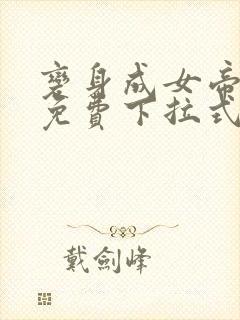 變身成女帝
免費下拉式
戴劍峰